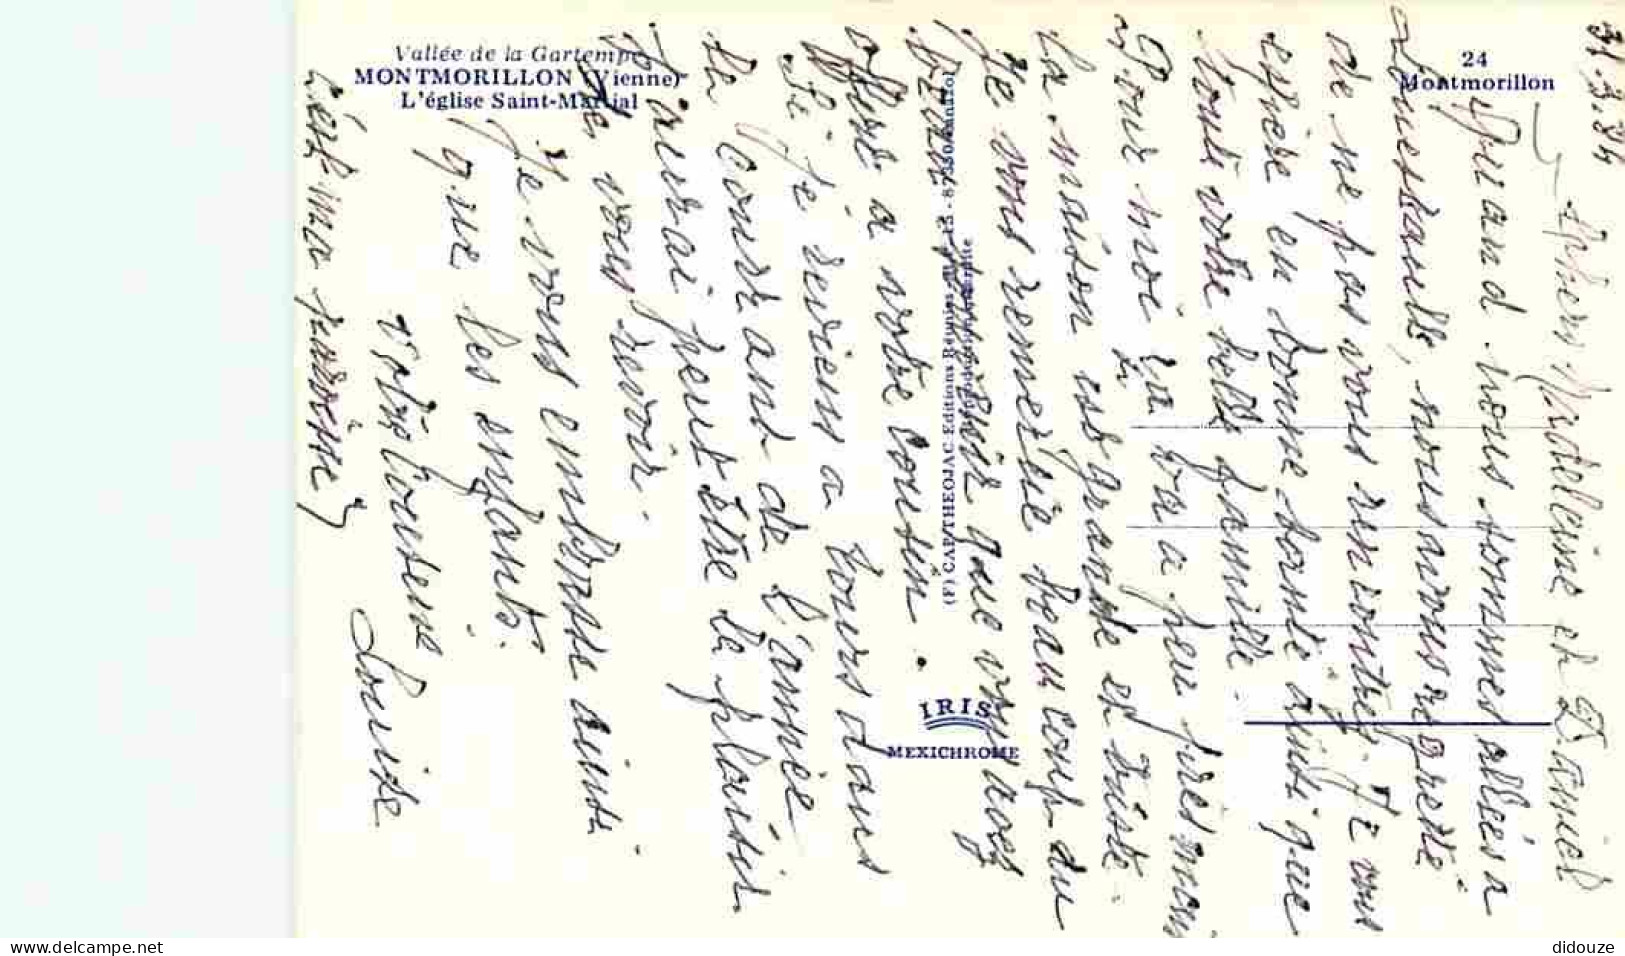 Vallée de la Gartempe
MONTMORILLON (Vienne)
L'église Saint-Martial
24
Montmorillon
(F) CAP-THEOJAC Editions Réunies
IRIS
MEXICHROME
31.3.84
Chers Madeleine et Daniel
Quand nous sommes allés à
nous avons regretté
de ne pas vous rencontrer. Je vous
espère en bonne santé ainsi que
toute votre belle famille.
Pour moi ça va à peu près mais
la maison est grande et triste.
Je vous remercie beaucoup du
beau souvenir que vous avez
offert à votre cousin.
Si je reviens à Tours dans
le courant de l'année
j'aurai peut être le plaisir
de vous revoir.
Je vous embrasse ainsi
que les enfants.
Votre cousine
Louise
(c'est ma paroisse)
www.delcampe.net
didouze